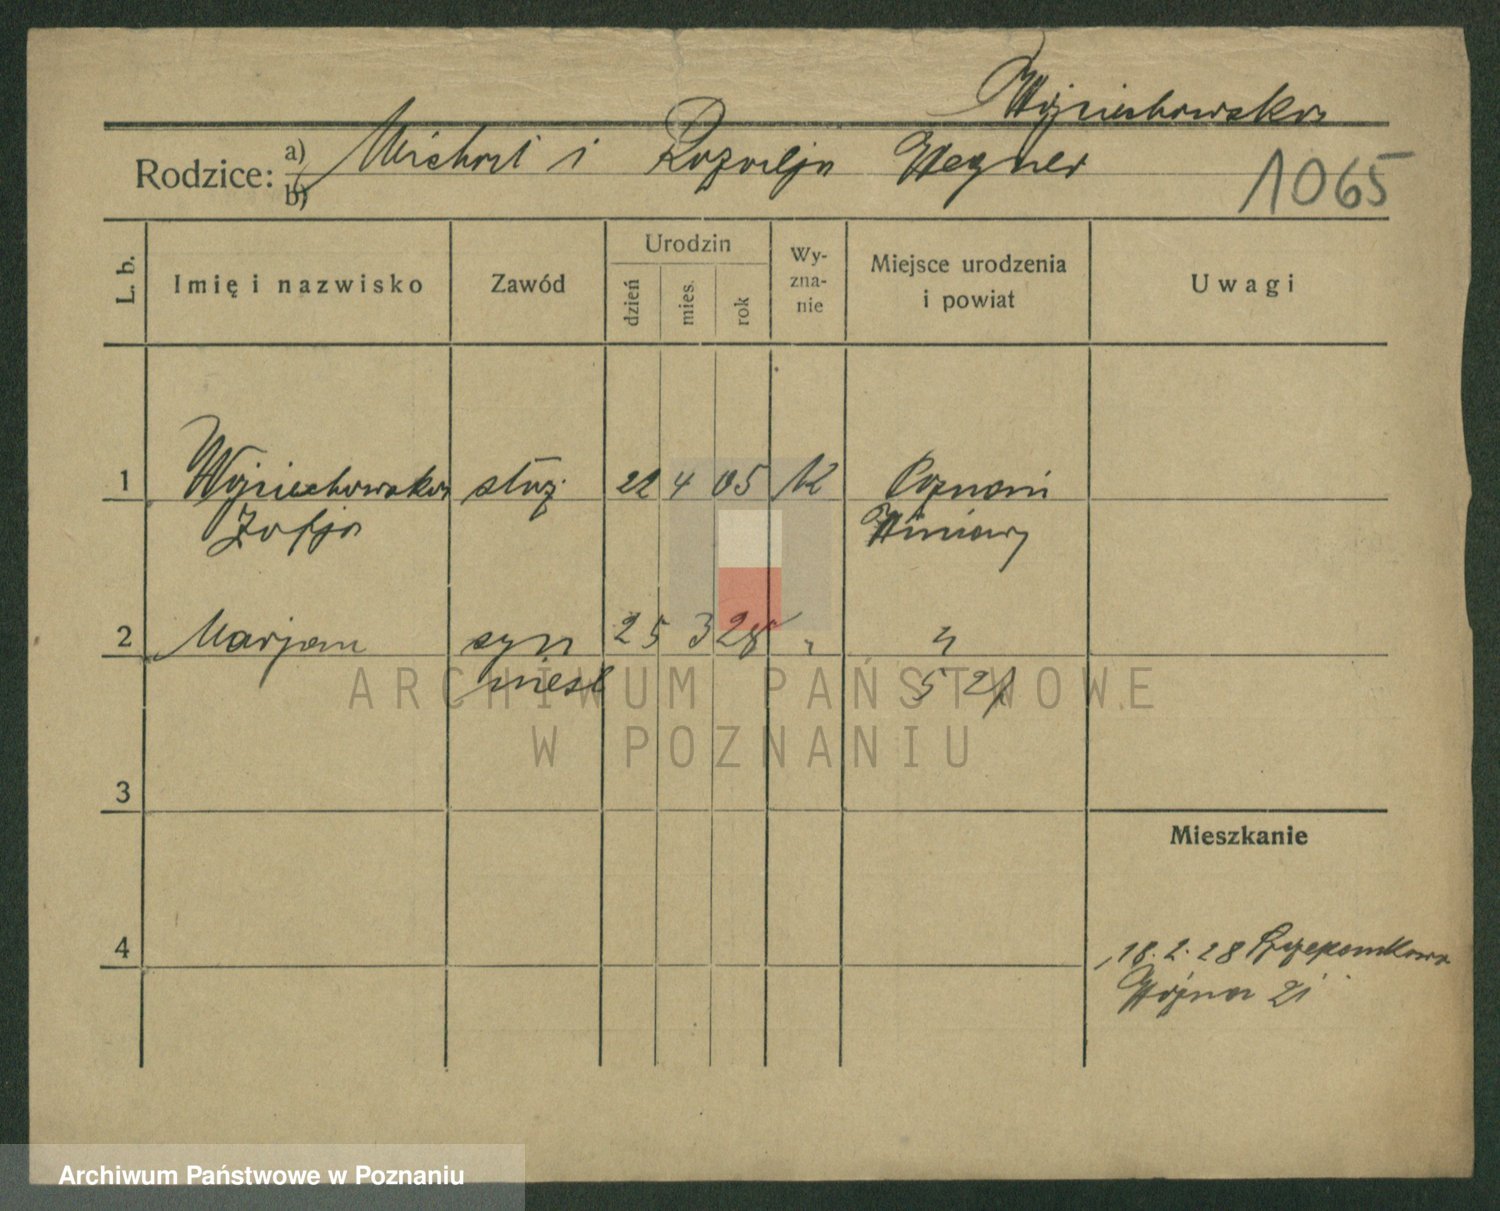 Wojciechowska
Rodzice: a) Michał i Rozalja Wegner
b)
1065
L. b.
Imię i nazwisko
Zawód
Urodzin
dzień
mies.
rok
Wy-
zna-
nie
Miejsce urodzenia
i powiat
Uwagi
1 Wojciechowska służ. 22 4 05 K Poznań
Zofja Winiary
2 Marjan syn 25 3 28 " "
nieśl
ARCHIWUM PAŃSTWOWE
W POZNANIU
3
Mieszkanie
4
18.2.28
Wojna 21
Archiwum Państwowe w Poznaniu